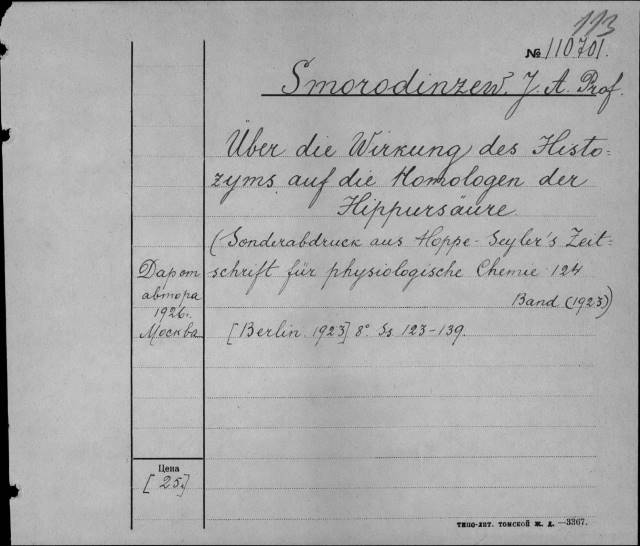 113
№ 110701.
Smorodinzew, J. A. Prof.
Über die Wirkung des Histo=
zyms auf die Homologen der
Hippursäure.
(Sonderabdruck aus Hoppe-Seyler's Zeit=
schrift für physiologische Chemie 124
Band (1923)
[Berlin. 1923] 8° Ss 123-139.
Дар от
автора
1926 г.
Москва
Цена
[25]
ТИПО-ЛИТ. ТОМСКОЙ Ж. Д. —3367.